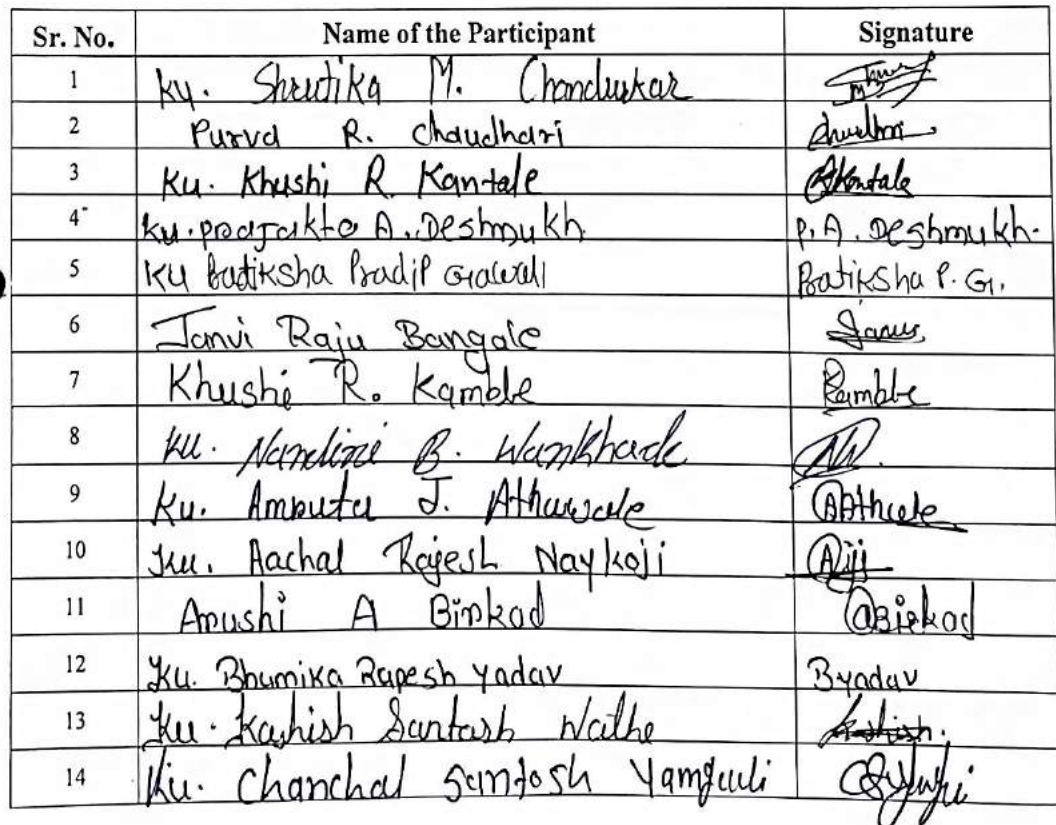 Sr. No. Name of the Participant Signature
1 Ku. Shrutika M. Chandurkar
2 Purva R. Chaudhari
3 Ku. Khushi R. Kantale AKantale
4 Ku. Prajakta A. Deshmukh P. A. Deshmukh.
5 Ku Pratiksha Pradip Gawali Pratiksha P. G.
6 Janvi Raju Bangale Janvi
7 Khushi R. Kamble Kamble
8 Ku. Nandini B. Wankhade
9 Ku. Amruta J. Athawale
10 Ku. Aachal Rajesh Naykoji
11 Arushi A Birkad ABirkad
12 Ku. Bhumika Rapesh Yadav Byadav
13 Ku. Kashish Santosh Wathe Kashish.
14 Ku. Chanchal Santosh